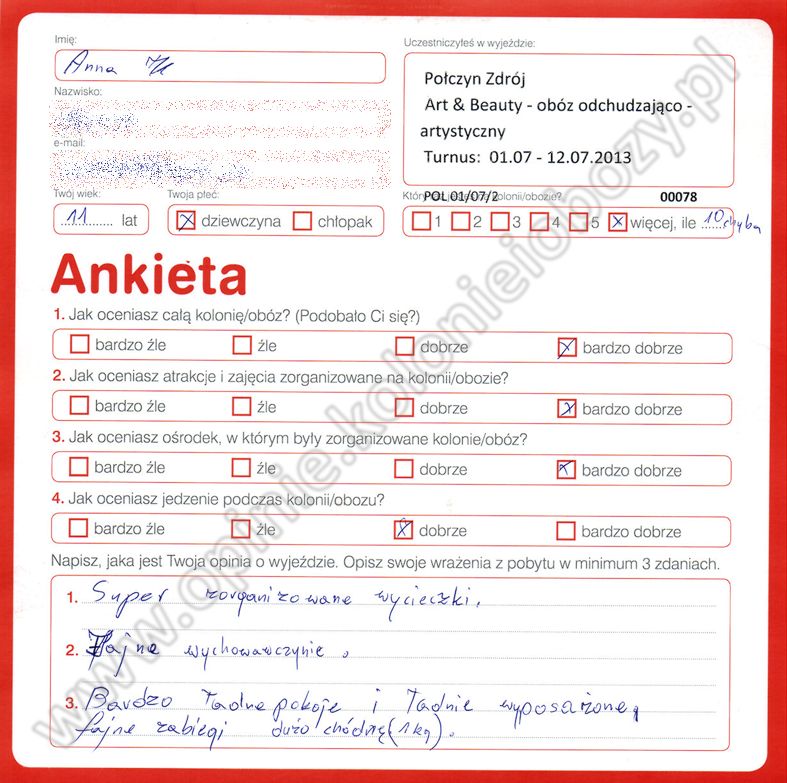 Imię:
Anna
Nazwisko:
e-mail:
Twój wiek:
11 lat
Twoja płeć:
dziewczyna chłopak
Uczestniczyłeś w wyjeździe:
Połczyn Zdrój
Art & Beauty - obóz odchudzająco -
artystyczny
Turnus: 01.07 - 12.07.2013
POL 01/07/2 00078
kolonii/obozie?
1 2 3 4 5 więcej, ile 10 chyba
Ankieta
1. Jak oceniasz całą kolonię/obóz? (Podobało Ci się?)
bardzo źle źle dobrze bardzo dobrze
2. Jak oceniasz atrakcje i zajęcia zorganizowane na kolonii/obozie?
bardzo źle źle dobrze bardzo dobrze
3. Jak oceniasz ośrodek, w którym były zorganizowane kolonie/obóz?
bardzo źle źle dobrze bardzo dobrze
4. Jak oceniasz jedzenie podczas kolonii/obozu?
bardzo źle źle dobrze bardzo dobrze
Napisz, jaka jest Twoja opinia o wyjeździe. Opisz swoje wrażenia z pobytu w minimum 3 zdaniach.
1. Super zorganizowane wycieczki.
2. Fajne wychowawczynie.
3. Bardzo ładne pokoje i ładnie wyposażone,
fajne zabiegi dużo chódnę (1 kg).
www.opinie.kolonieiobozy.pl